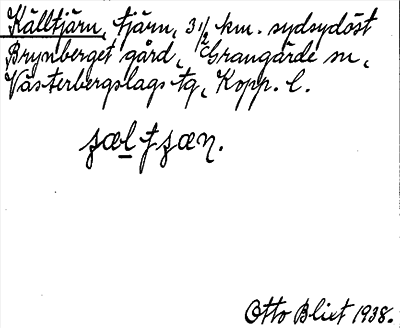 Källtjärn, tjärn, 3 1/2 km. sydsydöst
Brynberget gård, Grangärde sn,
Västerbergslags tg, Kopp. l.
Otto Blixt 1938.